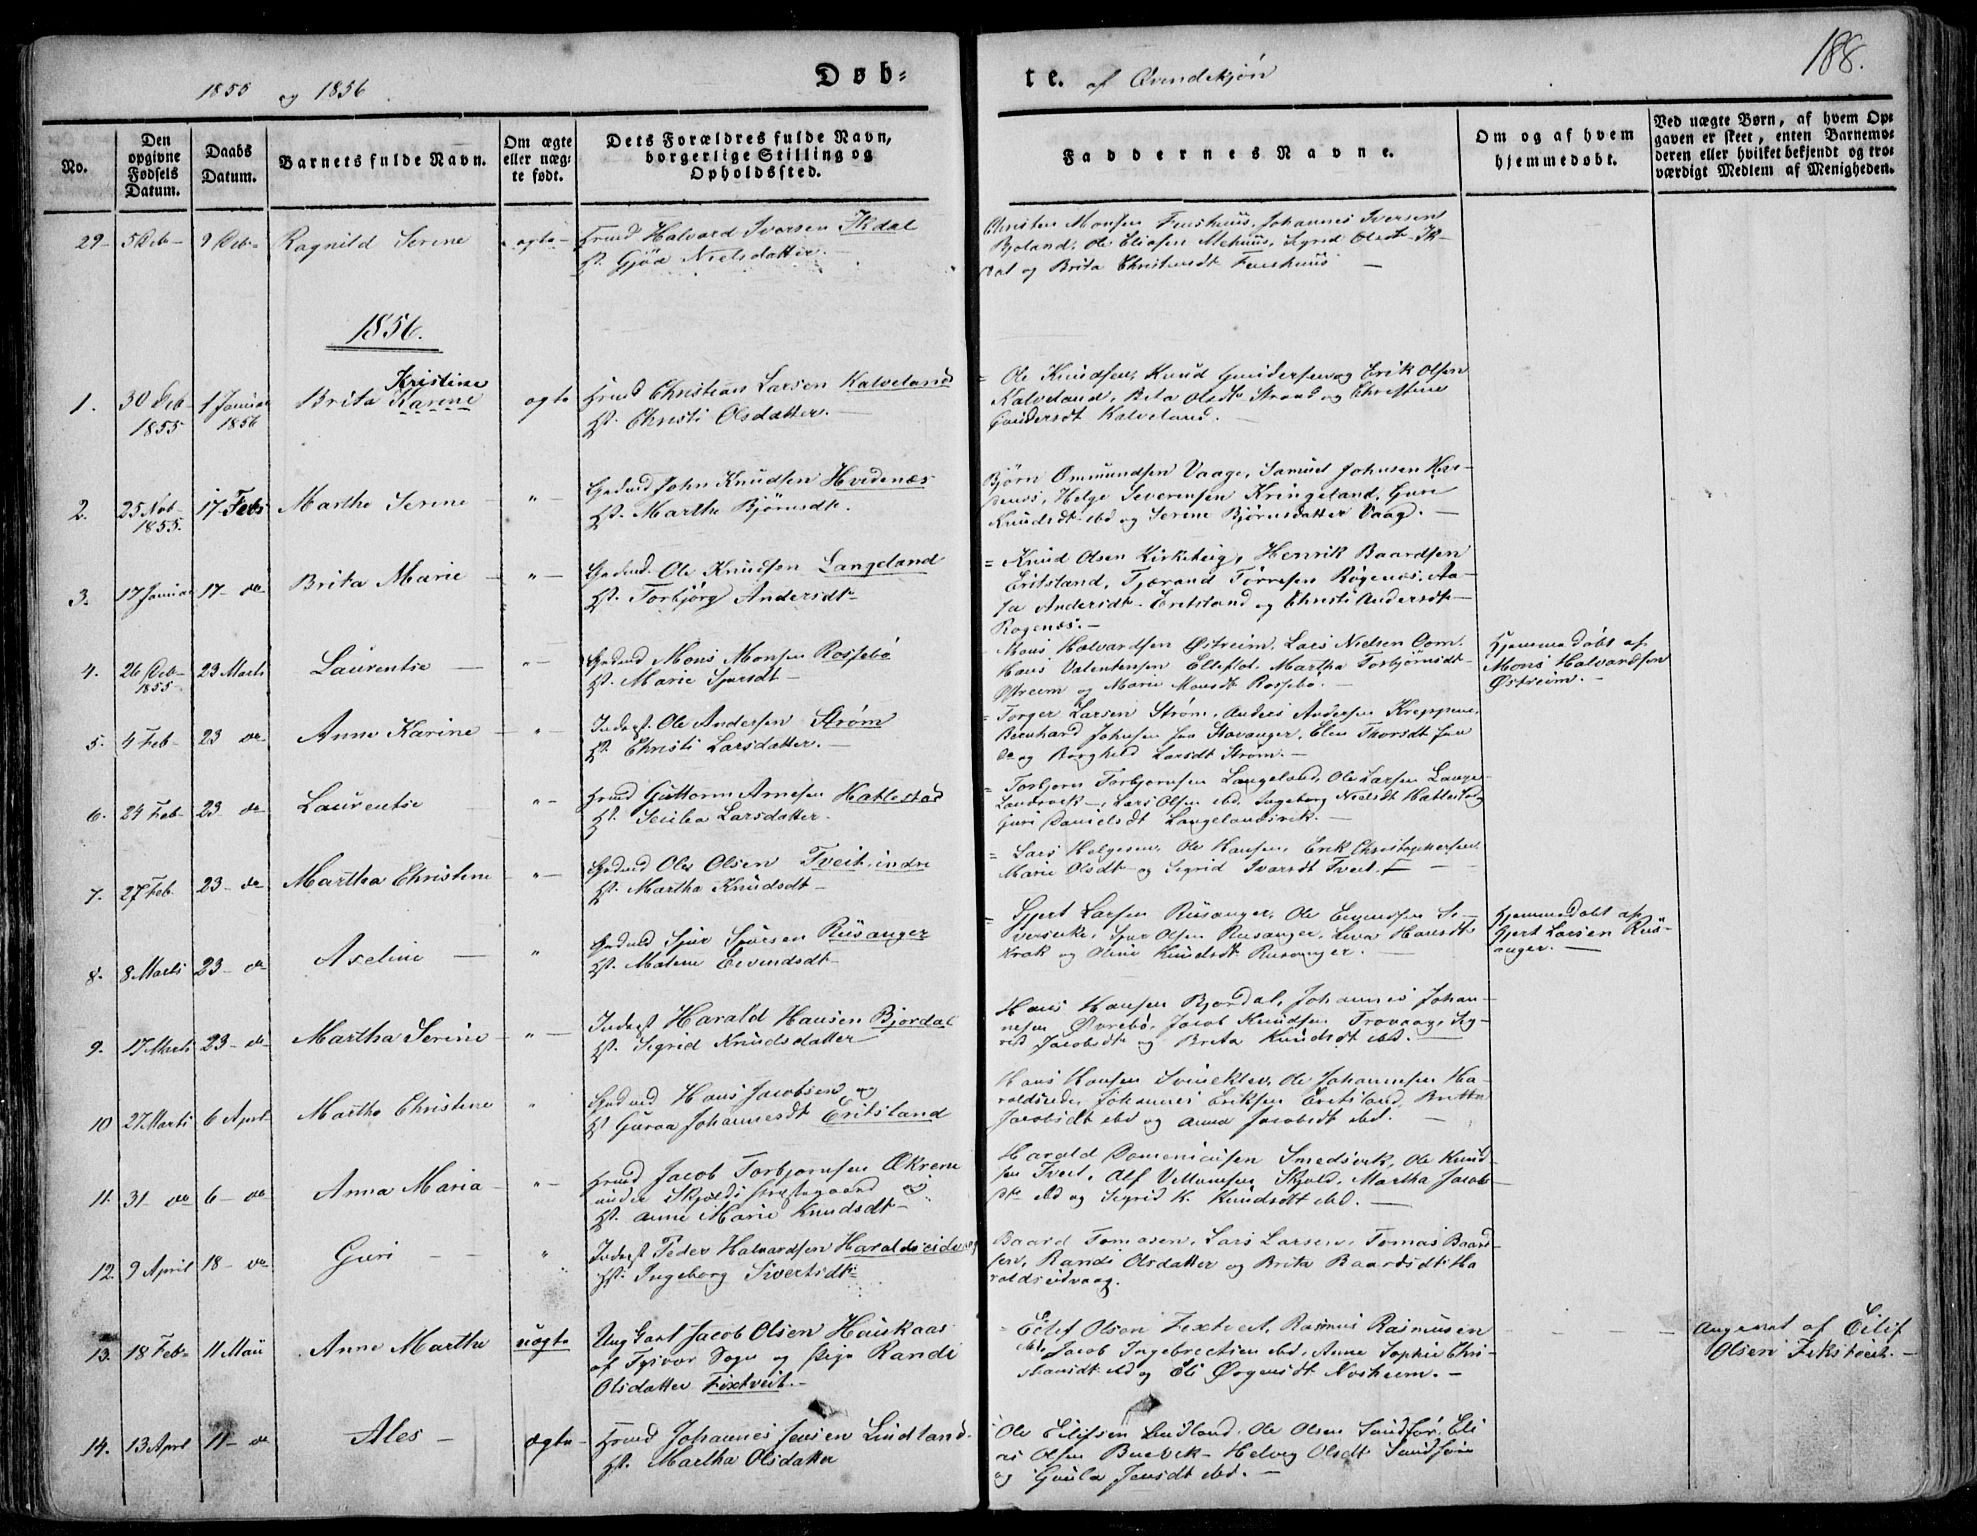 188.
1855 og 1856
Døb-
te. af Qvindekjøn
No.
Den
opgivne
Fødsels
Datum.
Daabs
Datum.
Barnets fulde Navn.
Om ægte
eller uæg-
te født.
Dets Forældres fulde Navn,
borgerlige Stilling og
Opholdssted.
Faddernes Navne.
Om og af hvem
hjemmedøbt.
Ved uægte Børn, af hvem Op-
gaven er skeet, enten Barnemo-
deren eller hvilket bekjendt og tro-
værdigt Medlem af Menigheden.
29 5 Deb 9 Deb Ragnild Serene ægte Hmd Halvard Iversen Ikdal
H. Gjøa Nielsdatter.
Christen Monsen Fuushuus, Johannes Iversen
Bjoland, Ole Eliasen Mehuus, Sigrid Olsdt Ik-
dal og Brita Christensdt Fuushuus
1856.
1. 30 Deb 1855 1 Januar 1856 Brita Karine Kristine ægte Hmd Christian Larsen Kalveland
H. Christi Olsdatter.
Ole Knudsen, Knud Gundersen og Erik Olsen
Kalveland, Brita Olsdt Strand og Christine
Gundersdt Kalveland.
2. 25 Nob 1855. 17 Feb Marthe Serene " Gadmd John Knudsen Hvidenæs
H. Marthe Bjørnsdt.
Bjørn Ommundsen Vaage, Samuel Johnsen Hvi-
denæs, Helge Severensen Kringeland, Guri
Knudsdt ibd og Serine Bjørnsdatter Vaage.
3. 17 Januar 17 do Brita Marie " Gadmd. Ole Knudsen Langeland
H. Torbjørg Andersdt
Knud Olsen Kirketeig, Henrik Baardsen
Eritsland, Tjærand Tørresen Røgenæs, Aa-
sa Andersdt Eritsland og Christi Andersdt
Rogenæs.
4. 26 Deb 1855 23 Marts Laurentse " Gadmd Mons Monsen Rossebø
H. Marie Sjursdt
Mons Halvardsen Østreim, Lars Nielsen Oom,
Hans Valentensen Elleflot, Martha Torbjørnsdt
Østreim og Marie Monsdt Rossebø.
Hjemmedøbt af
Mons Halvardsen
Østreim.
5. 4 Feb 23 do Anne Karine " Inderst Ole Andersen Strøm
H. Christi Larsdatter.
Torger Larsen Strøm, Anders Andersen Kreppene,
Bernhard Johnsen fra Stavanger, Elen Thorsdt fra
do og Borghild Larsdt Strøm.
6. 24 Feb 23 do Laurentse " Hmd Guttorm Arnesen Hatlestad
H. Seselea Larsdatter.
Torbjørn Torbjørnsen Langeland, Ole Larsen Lange-
landsvik, Lars Olsen ibd. Ingeborg Nielsdt Hatlestad
Guri Danielsdt Langelandsvik.
7. 27 Feb 23 do Martha Christene " Gadmd Ole Olsen Tveit, indre
H. Martha Knudsdt
Lars Helgesen, Ole Hansen, Erik Christophersen,
Marie Olsdt og Sigrid Ivarsdt Tveit.
8. 8 Marts 23 do Aseline " Gadmd Sjur Sjursen Rüsanger
H. Malene Eivindsdt
Gjert Larsen Rusanger, Ole Eivindsen
Sjur Olsen Rusanger, Lina Hansdt
Krak og Oline Knudsdt Rusanger.
Hjemmedøbt af
Gjert Larsen Rüs-
anger.
9. 17 Marts 23 do Martha Serine " Inderst Harald Hansen Bjordal
H. Sigrid Knudsdatter
Hans Hansen Bjordal, Johannes Johan-
nesen Øvrebø, Jacob Knudsen Trovaag, Sig-
rid Jacobsdt og Brita Knudsdt ibd.
10 27 Marts 6 Apr Martha Christene " Gadmd Hans Jacobsen og
H Guroa Johannesdt Eritsland
Hans Hansen Svineklev, Ole Johannesen Ha-
raldseide, Johannes Eriksen Eritsland, Britta
Jacobsdt ibd og Anna Jacobsdt ibd.
11. 31 do 6 do Anna Maria " Hmd Jacob Torbjørnsen Økrene
under Skjolds Prestegaard og
H. Anne Marie Knudsdt
Harald Domenicusen Smedsvik, Ole Knud-
sen Tveit, Alf Villumsen Skjold, Martha Jacobs-
dt ibd og Sigrid K. Knudsdt ibd.
12. 9 April 18 do Guri " Inderst Peder Halvardsen Haraldseidvaag
H. Ingeborg Sivertsdt
Baard Tomasen, Lars Larsen, Tomas Baard-
sen, Randi Olsdatter og Brita Baardsdt Ha
raldseidvaag.
13. 18 Feb 11 Mai Anne Martha uægte Ung Karl Jacob Olsen Hauskaas
af Tysvær Sogn og Pige Randi
Olsdatter Fixtveit.
Eilif Olsen Fextveit, Rasmus Rasmusen
ibd, Jacob Ingebrectsen ibd, Anne Sophie Chri-
stiansdt ibd og Eli Ørgensdt Nosheim.
Angevet af Eilif
Olsen Fikstveit.
14. 13 Apr 11 do Ales ægte Hmd Johannes Jensen Lindland.
H. Martha Olsdatter
Ole Eilifsen Lindland, Ole Olsen Sandfør, Eli
as Olsen Buevik, Helvig Olsdt Sandføre
og Guula Jensdt ibd.